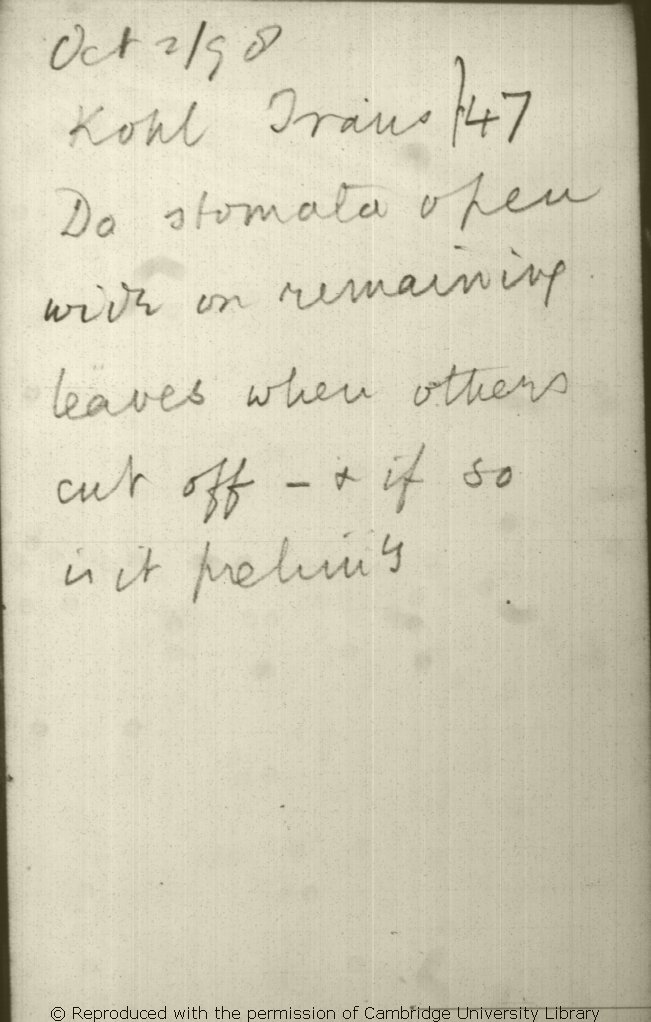 Oct 2/98
Kohl Trans p 47
Do stomata open
wide on remaining
leaves when others
cut off - + if so
is it prelimy
© Reproduced with the permission of Cambridge University Library